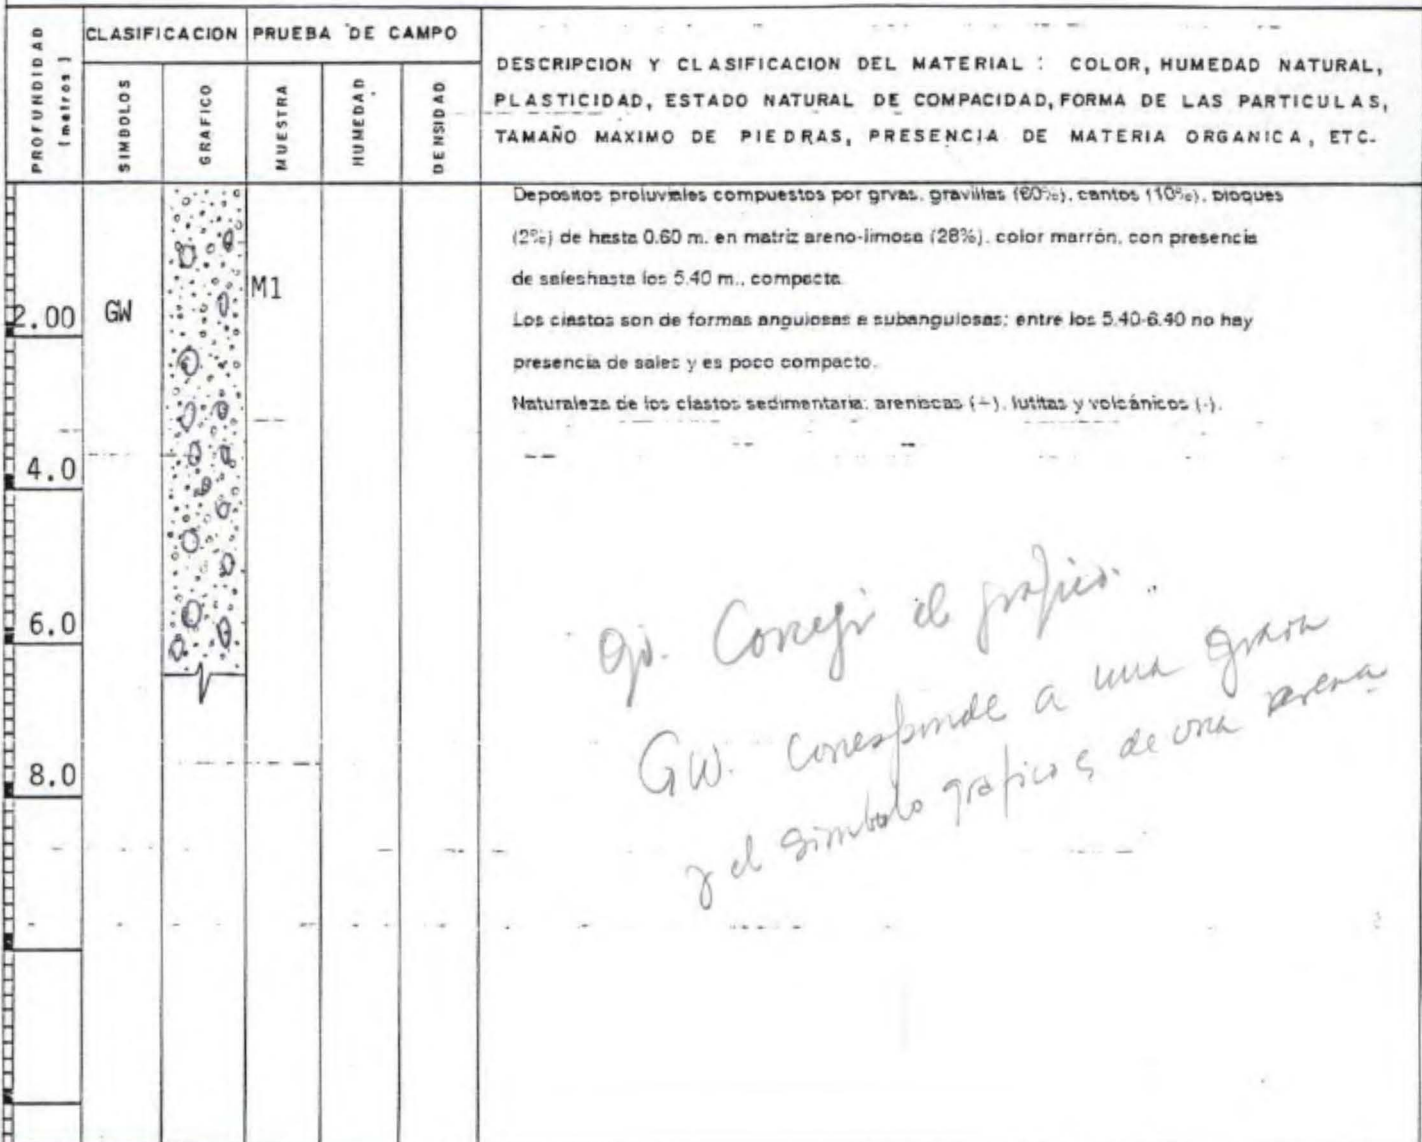 PROFUNDIDAD
(metros)
CLASIFICACION
PRUEBA DE CAMPO
SIMBOLOS
GRAFICO
MUESTRA
HUMEDAD
DENSIDAD
DESCRIPCION Y CLASIFICACION DEL MATERIAL : COLOR, HUMEDAD NATURAL,
PLASTICIDAD, ESTADO NATURAL DE COMPACIDAD, FORMA DE LAS PARTICULAS,
TAMAÑO MAXIMO DE PIEDRAS, PRESENCIA DE MATERIA ORGANICA, ETC.
Depositos proluviales compuestos por grvas, gravillas (60%), cantos (10%), bloques
(2%) de hasta 0.60 m. en matriz areno-limosa (28%), color marrón, con presencia
de saleshasta los 5.40 m., compacta.
Los clastos son de formas angulosas a subangulosas; entre los 5.40-6.40 no hay
presencia de sales y es poco compacto.
Naturaleza de los clastos sedimentaria: areniscas (+), lutitas y volcánicos (-).
M1
2.00 GW
4.0
6.0
8.0
Corregir el gráfico.
GW. corresponde a una grava
y el simbolo grafico es de una arena